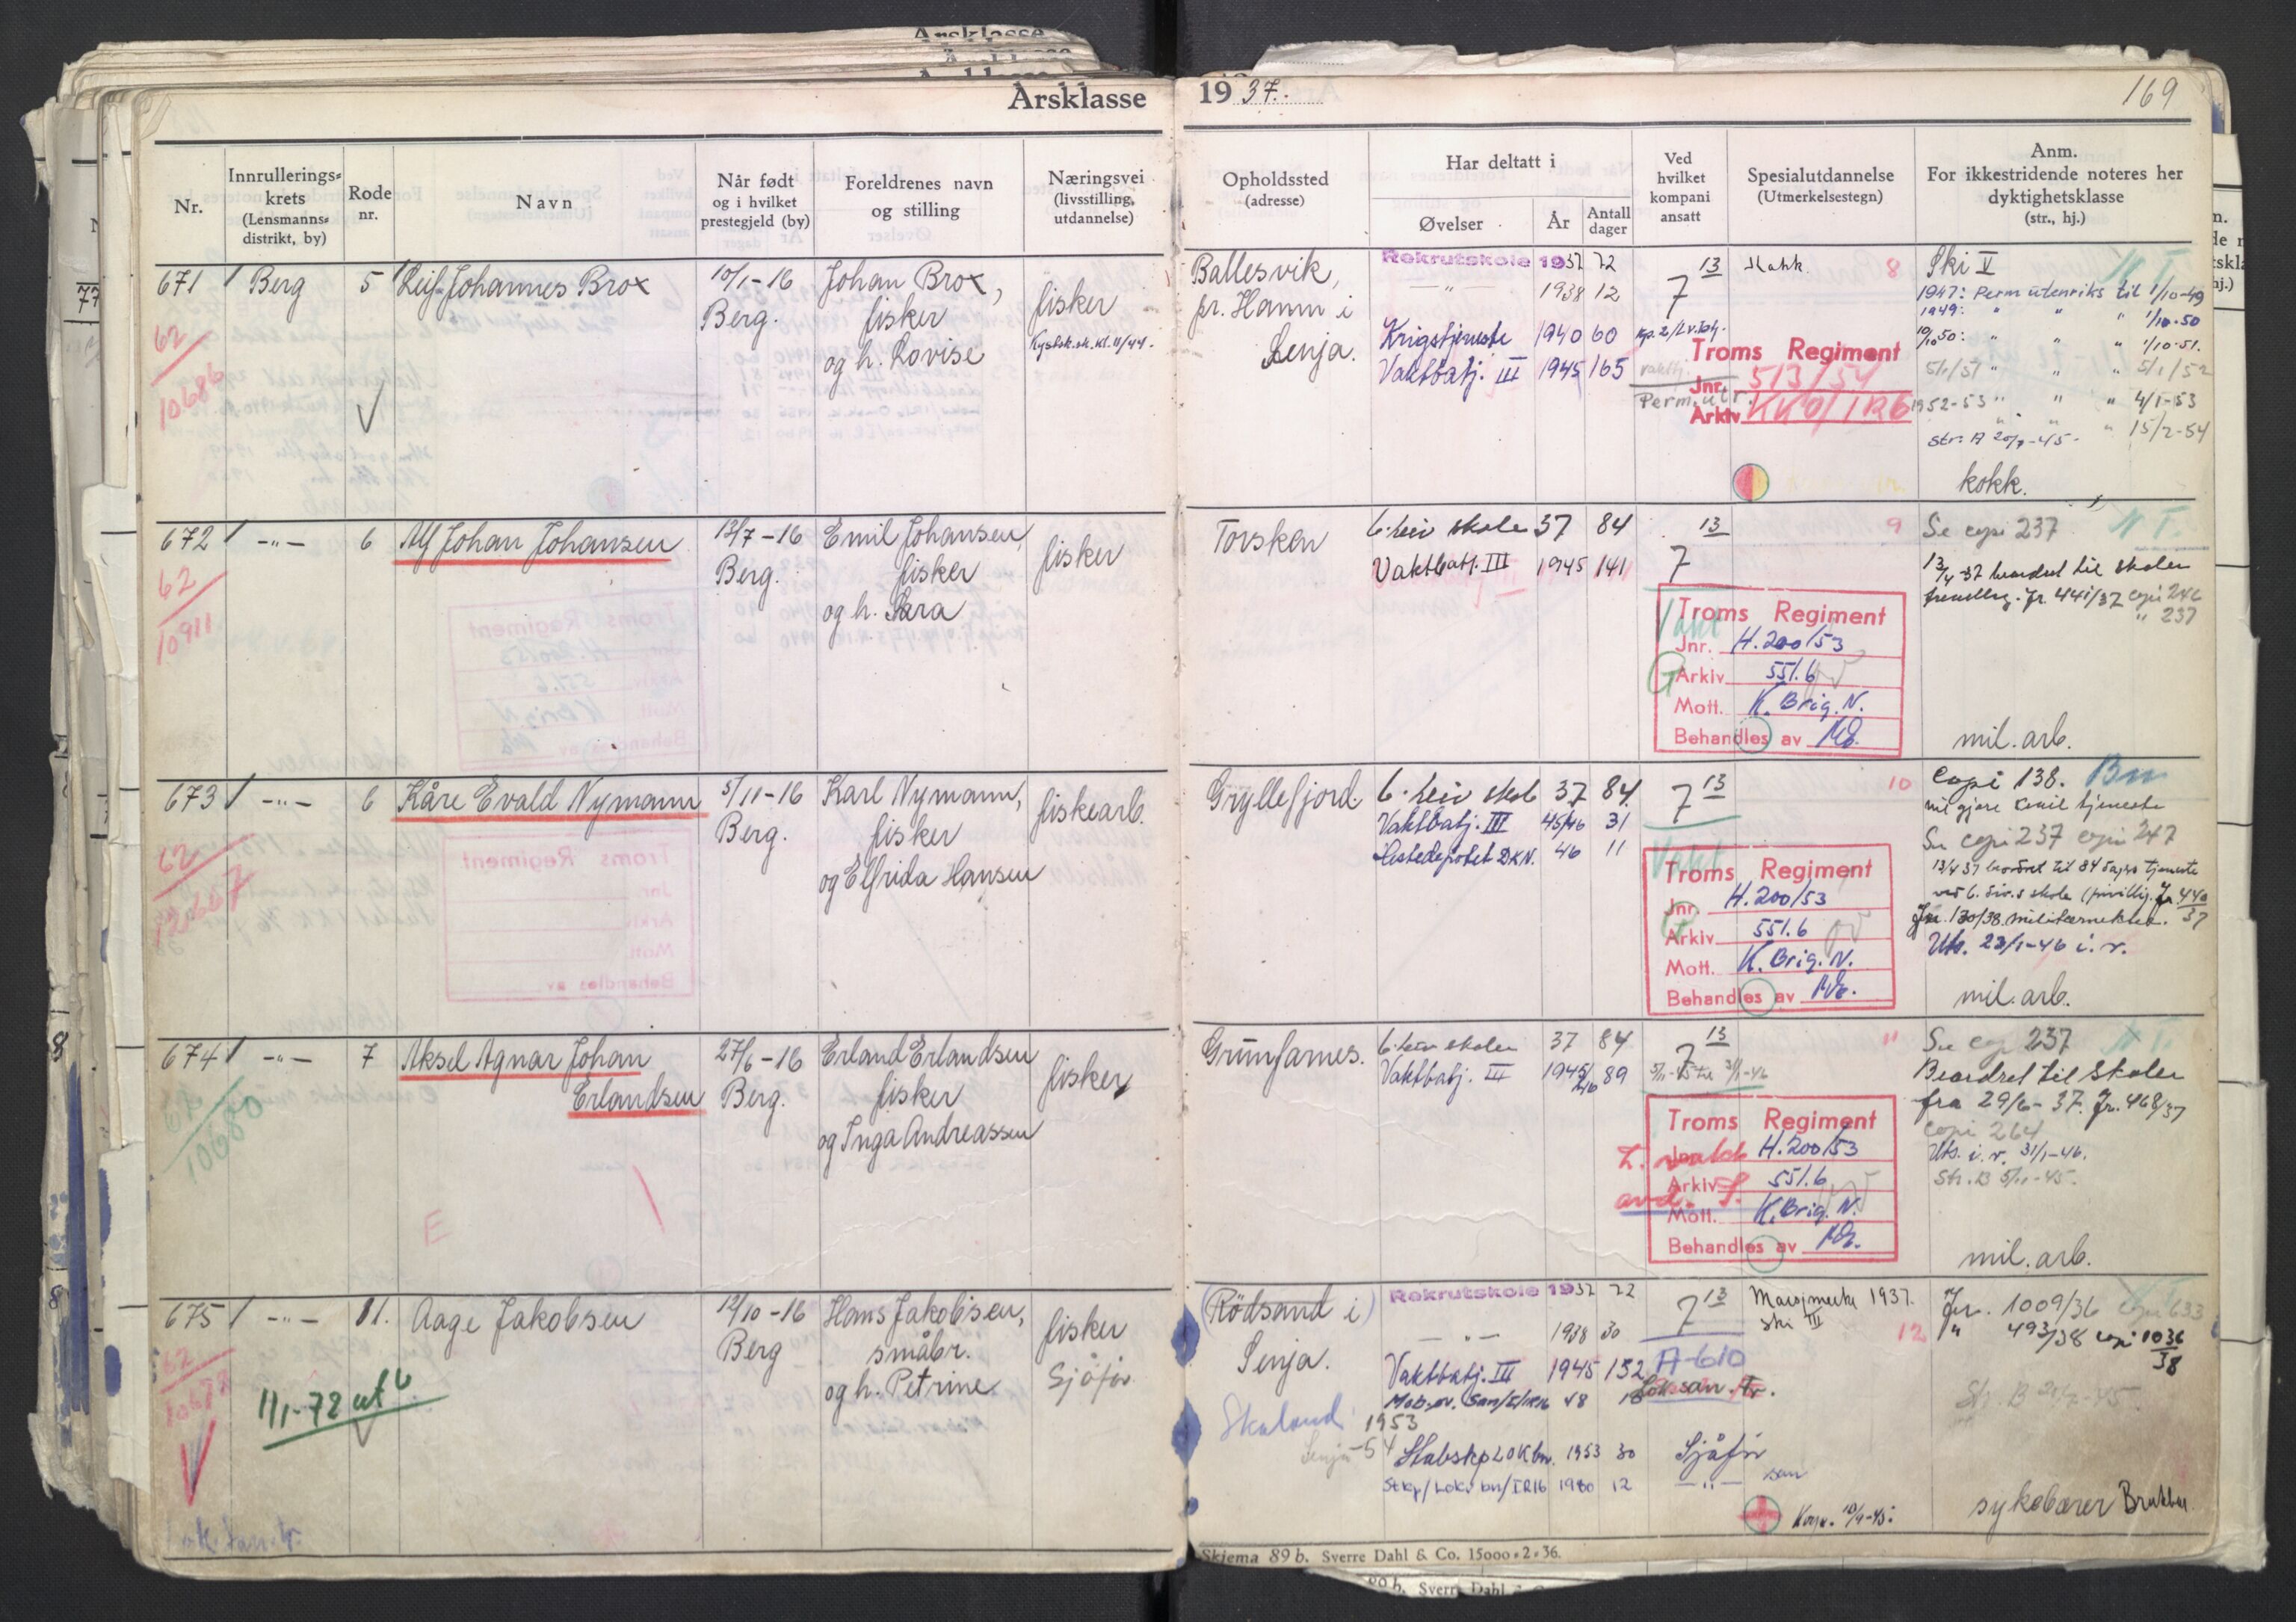 Årsklasse 1937.
169
Nr.
Innrullerings-
krets
(Lensmanns-
distrikt, by)
Rode
nr.
Navn
Når født
og i hvilket
prestegjeld (by)
Foreldrenes navn
og stilling
Næringsvei
(livsstilling,
utdannelse)
Opholdssted
(adresse)
Har deltatt i
Øvelser
År
Antall
dager
Ved
hvilket
kompani
ansatt
Spesialutdannelse
(Utmerkelsestegn)
Anm.
For ikkestridende noteres her
dyktighetsklasse
(str., hj.)
671 Berg 5 Leif Johannes Brox
10/1-16
Berg.
Johan Brox,
fisker
og h. Lovise
fisker
62
10686
Ballesvik,
pr. Hamn i
Senja.
Rekrutskole 1937 72
— " — 1938 12
Krigstjeneste 1940 60
Vaktbatj. III 1945 165
7 13
Perm. utr.
Troms Regiment
Jnr. 513/54
Arkiv KKO/IR6
8
Ski V
1947: Perm utenriks til 1/10-49
1949: " " " 1/10-50
10/10 50: " " " 1/10-51.
5/1/51 " " " 5/1/52
1952-53 " " " 4/1-53
" 15/2-54
Str. A 20/7-45.
kokk.
672 — " — 6 Alf Johan Johansen
13/7-16
Berg.
Emil Johansen,
fisker
og h. Sara
fisker
62
10911
Torsken
6. div skole 37 84
Vaktbatj. III 1945 141
7 13
Vakt
Troms Regiment
Jnr. H.200/53
Arkiv 551.6
Mott. K. Brig. N.
Behandles av
9
Se copi 237
N T.
13/4 37 beordret til skolen
frivillig. Jr. 441/37 copi 246
" 237
mil. arb.
673 — " — 6 Kåre Evald Nymann
5/11-16
Berg.
Karl Nymann,
fisker
og Elfrida Hansen
fiskearb.
62
12667
Gryllefjord
6. div skole 37 84
Vaktbatj. III 45/46 31
Hestedepotet DKN. 46 11
7 13
Vakt
Troms Regiment
Jnr. H.200/53
Arkiv 551.6
Mott. K. Brig. N.
Behandles av
10
Copi 138.
vil gjøre tjeneste
Se copi 237 copi 247
13/4 37 beordret til 84 dagers tjeneste
ved 6. div.s skole (frivillig. Jr 440/37
Jnr. 130/38
Uts. 23/1-46 i. r.
mil. arb.
674 — " — 7 Aksel Agnar Johan
Erlandsen
27/6-16
Berg.
Erland Erlandsen
fisker
og Inga Andreassen
fisker
10680
E
Grunfarnes.
6. div skolen 37 84
Vaktbatj. III 1945/46 89
7 13
5/11-45 til 31/1-46
Troms Regiment
Jnr. H.200/53
Arkiv 551.6
Mott. K. Brig. N.
Behandles av
11
Se copi 237
Beordret til skolen
fra 29/6-37. Jr. 468/37
copi 264
Uts. i. r. 31/1-46.
Str. B 5/11-45.
mil. arb.
675 — " — 11. Aage Jakobsen
12/10-16
Berg
Hans Jakobsen,
småbr.
og h. Petrine
fisker
Sjåfør
62
1/1-72 utg
(Rödsand i)
Senja.
Skaland
Senja
Rekrutskole 1937 72
— " — 1938 30
Vaktbatj. III 1945 132
1948
1953
-54
Stabskp LOK bn. 1953 30
Stkp/Lok. bn/IR16 1960 12
7 13
A-610
Lok san. tr.
Sjåfør
— " — san
Marsjmerke 1937.
Ski III
12
Jr. 1009/36 copi 633
" 493/38 copi 1036/38
Str. B
sykebærer
Skjema 89 b. Sverre Dahl & Co. 15000-2-36.